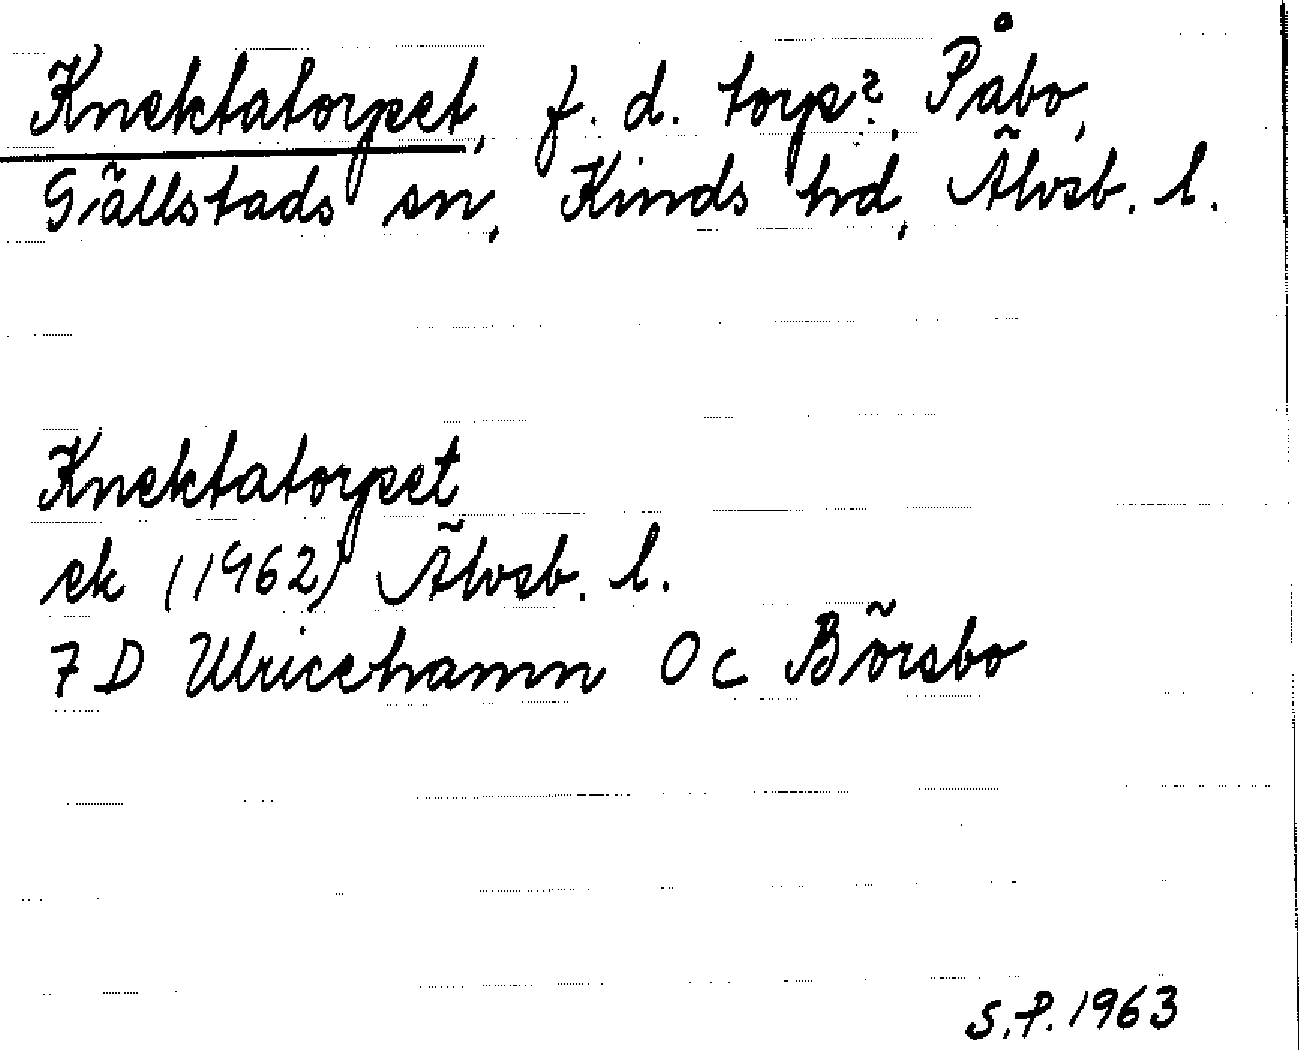 Knektatorpet, f. d. torp?, Påbo,
Gällstads sn, Kinds hd, Älvsb. l.
Knektatorpet
ek (1962) Älvsb. l.
7 D Ulricehamn 0 c Börsbo
S.P. 1963